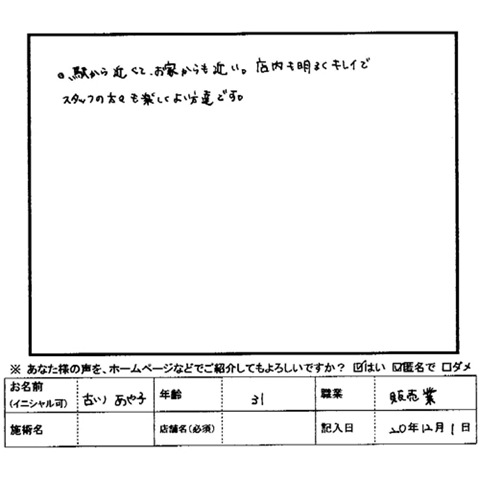 ○駅から近くて、お家からも近い。店内も明るくキレイで
スタッフの方々も楽しくよい方達です。
※ あなた様の声を、ホームページなどでご紹介してもよろしいですか? ☑はい ☑匿名で □ダメ
お名前 (イニシャル可) あや子 年齢 31 職業 販売業
施術名 店舗名(必須) 記入日 20年12月1日